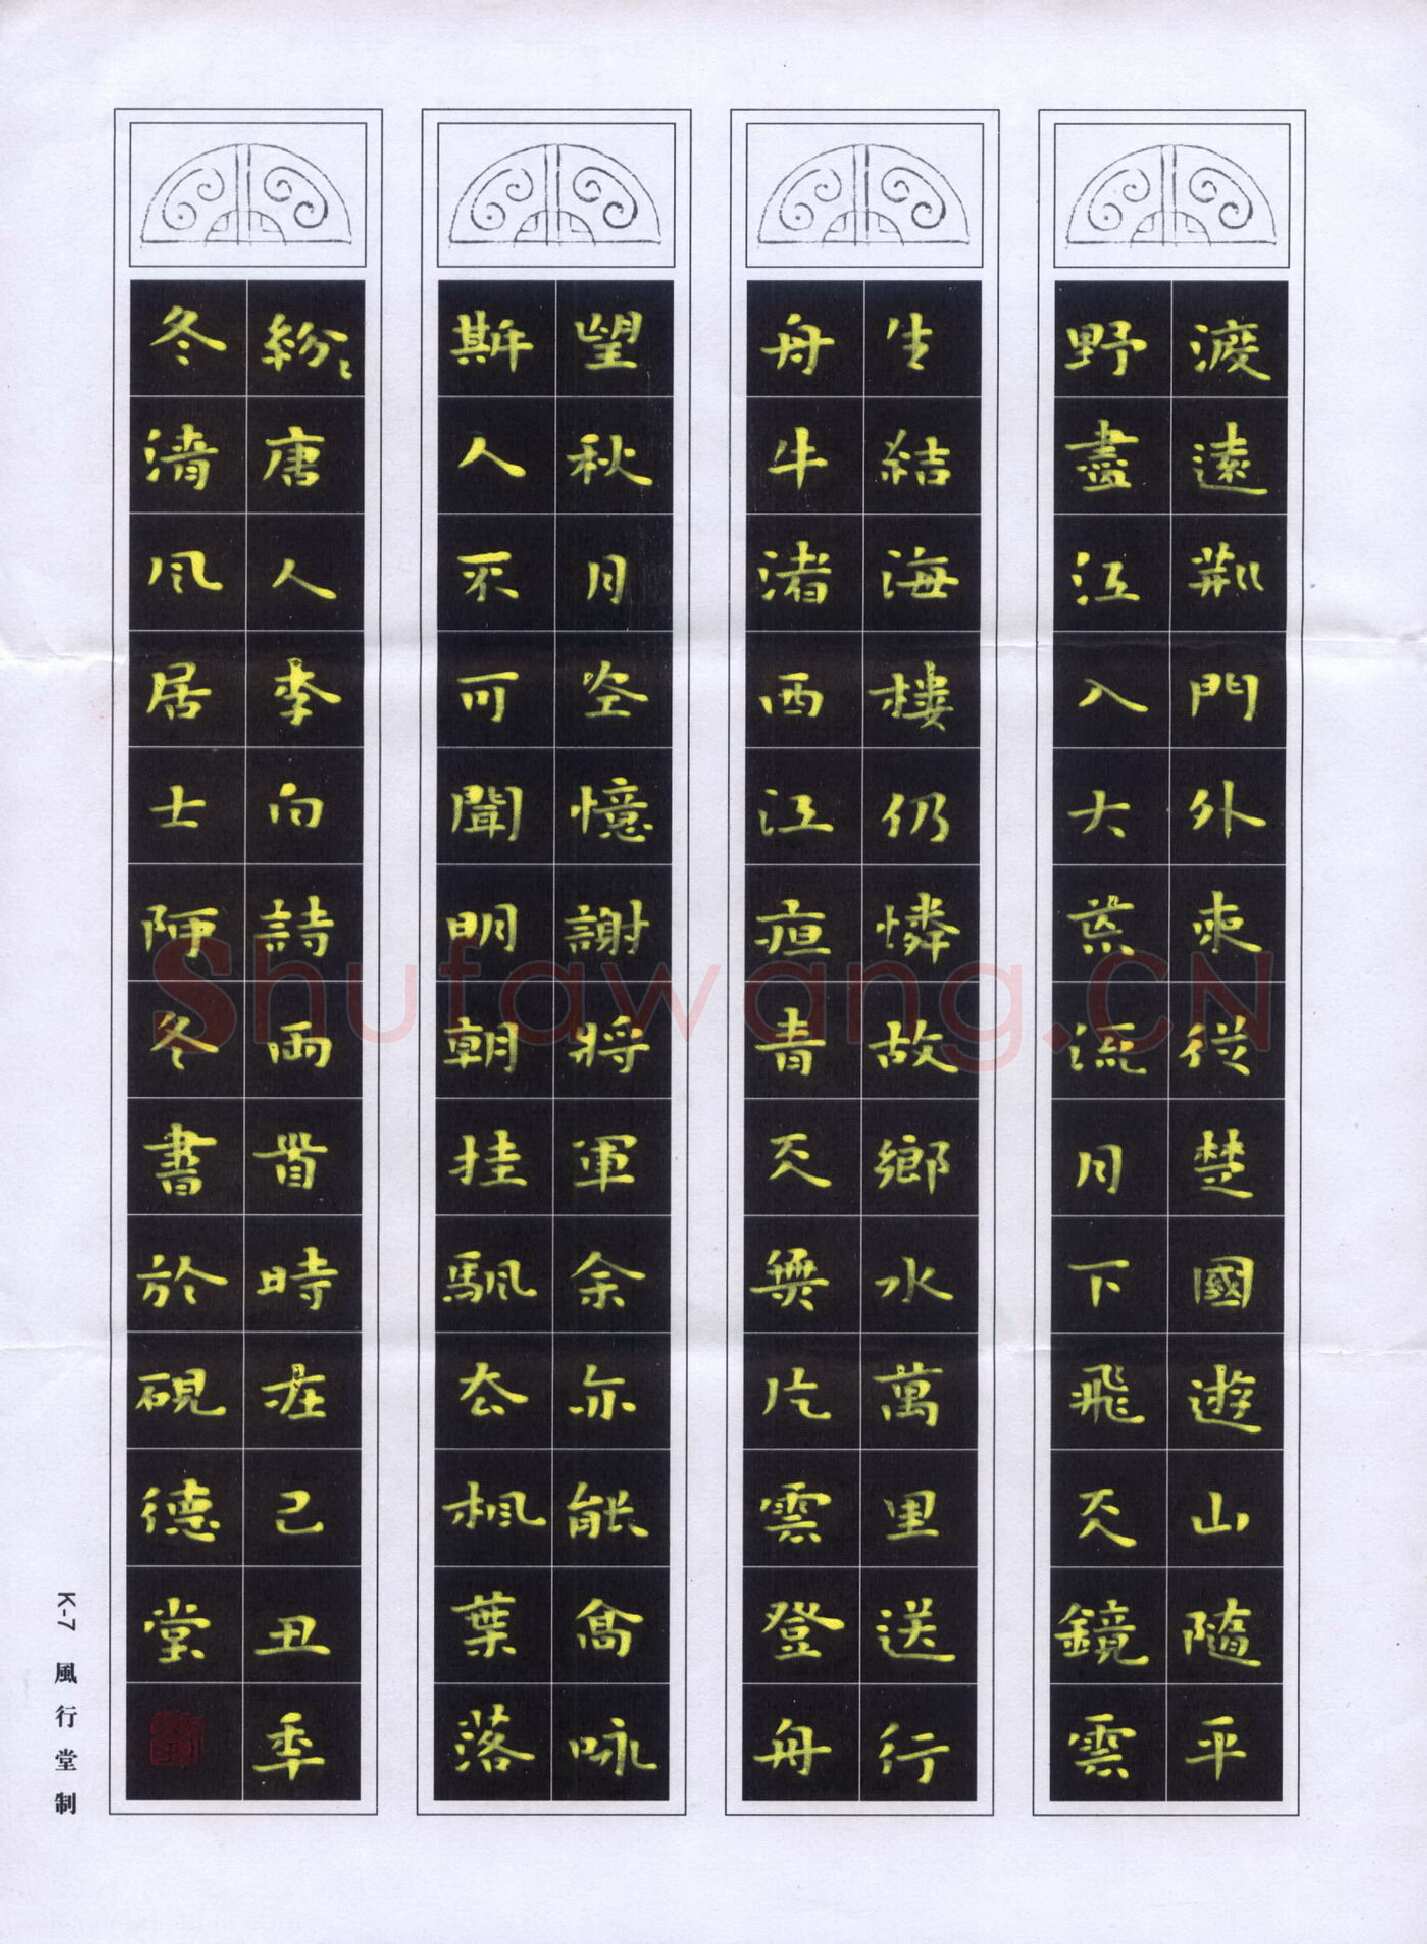 渡遠荊門外來從楚國遊山隨平
野盡江入大荒流月下飛天鏡雲
生結海樓仍憐故鄉水萬里送行
舟牛渚西江亱青天無片雲登舟
望秋月空憶謝將軍余亦能高咏
斯人不可聞明朝挂颿去楓葉落
紛〻唐人李白詩兩首時在己丑年
冬清風居士冬書於硯德堂
K-7 風行堂制
Shufawang.CN